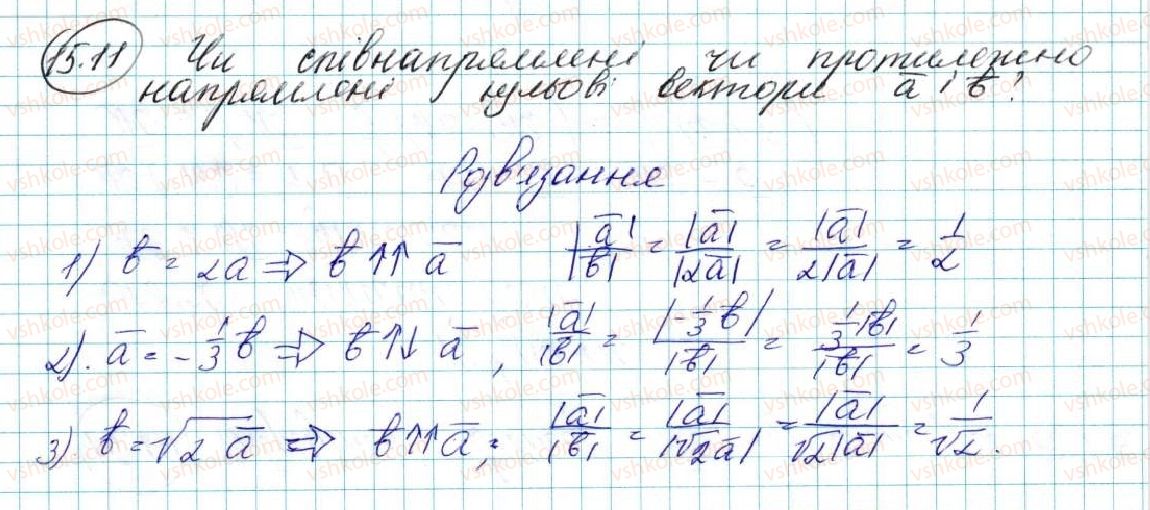 15.11 Чи співнапрямлені чи протилежно
напрямлені нульові вектори a̅ і b̅?
Розв'язання
1) b̅ = 2a ⇒ b̅ ↑↑ a̅ |a̅|/|b̅| = |a̅|/|2a̅| = |a̅|/2|a̅| = 1/2
2). a̅ = -1/3 b̅ ⇒ b̅ ↑↓ a̅, |a̅|/|b̅| = |-1/3 b̅|/|b̅| = 1/3|b̅|/|b̅| = 1/3
3) b̅ = √2 a̅ ⇒ b̅ ↑↑ a̅; |a̅|/|b̅| = |a̅|/|√2a̅| = |a̅|/√2|a̅| = 1/√2.
vshkole.com